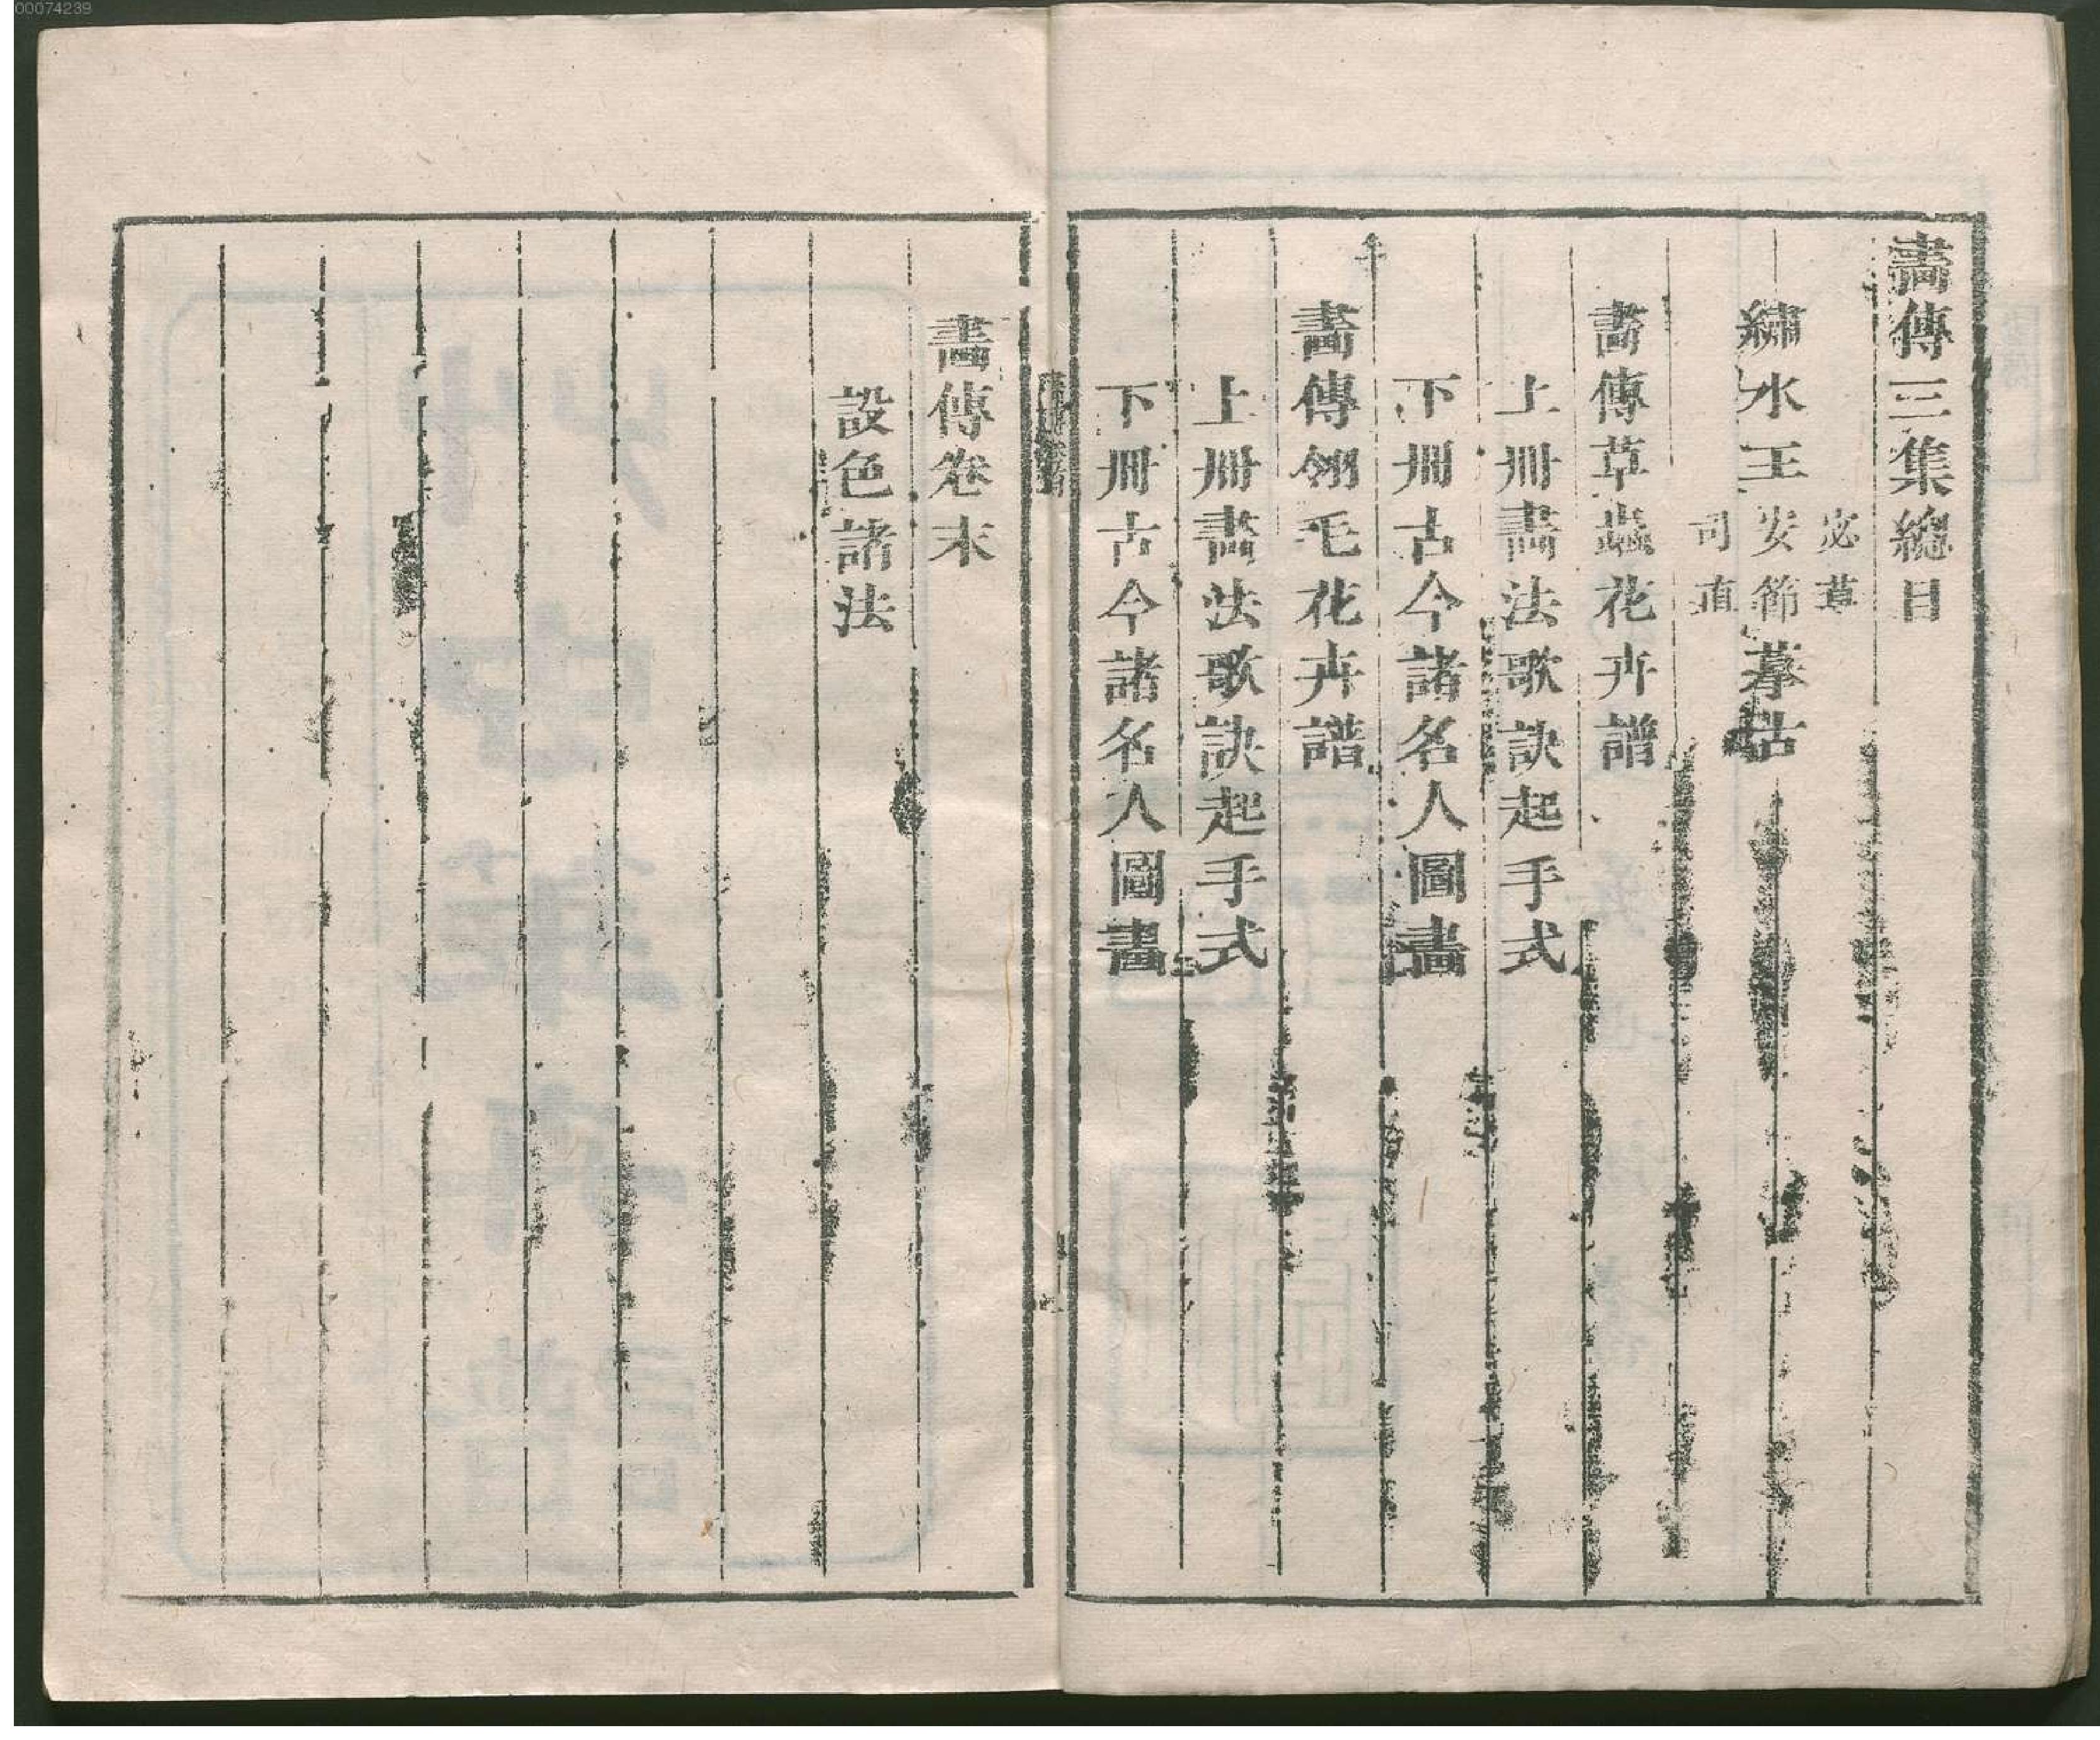 00074239
畫傳三集總目
繡水王
宓草
安節
司直
摹古
畫傳草蟲花卉譜
上冊畫法歌訣起手式
下冊古今諸名人圖畫
畫傳翎毛花卉譜
上冊畫法歌訣起手式
下冊古今諸名人圖畫
畫傳卷末
設色諸法